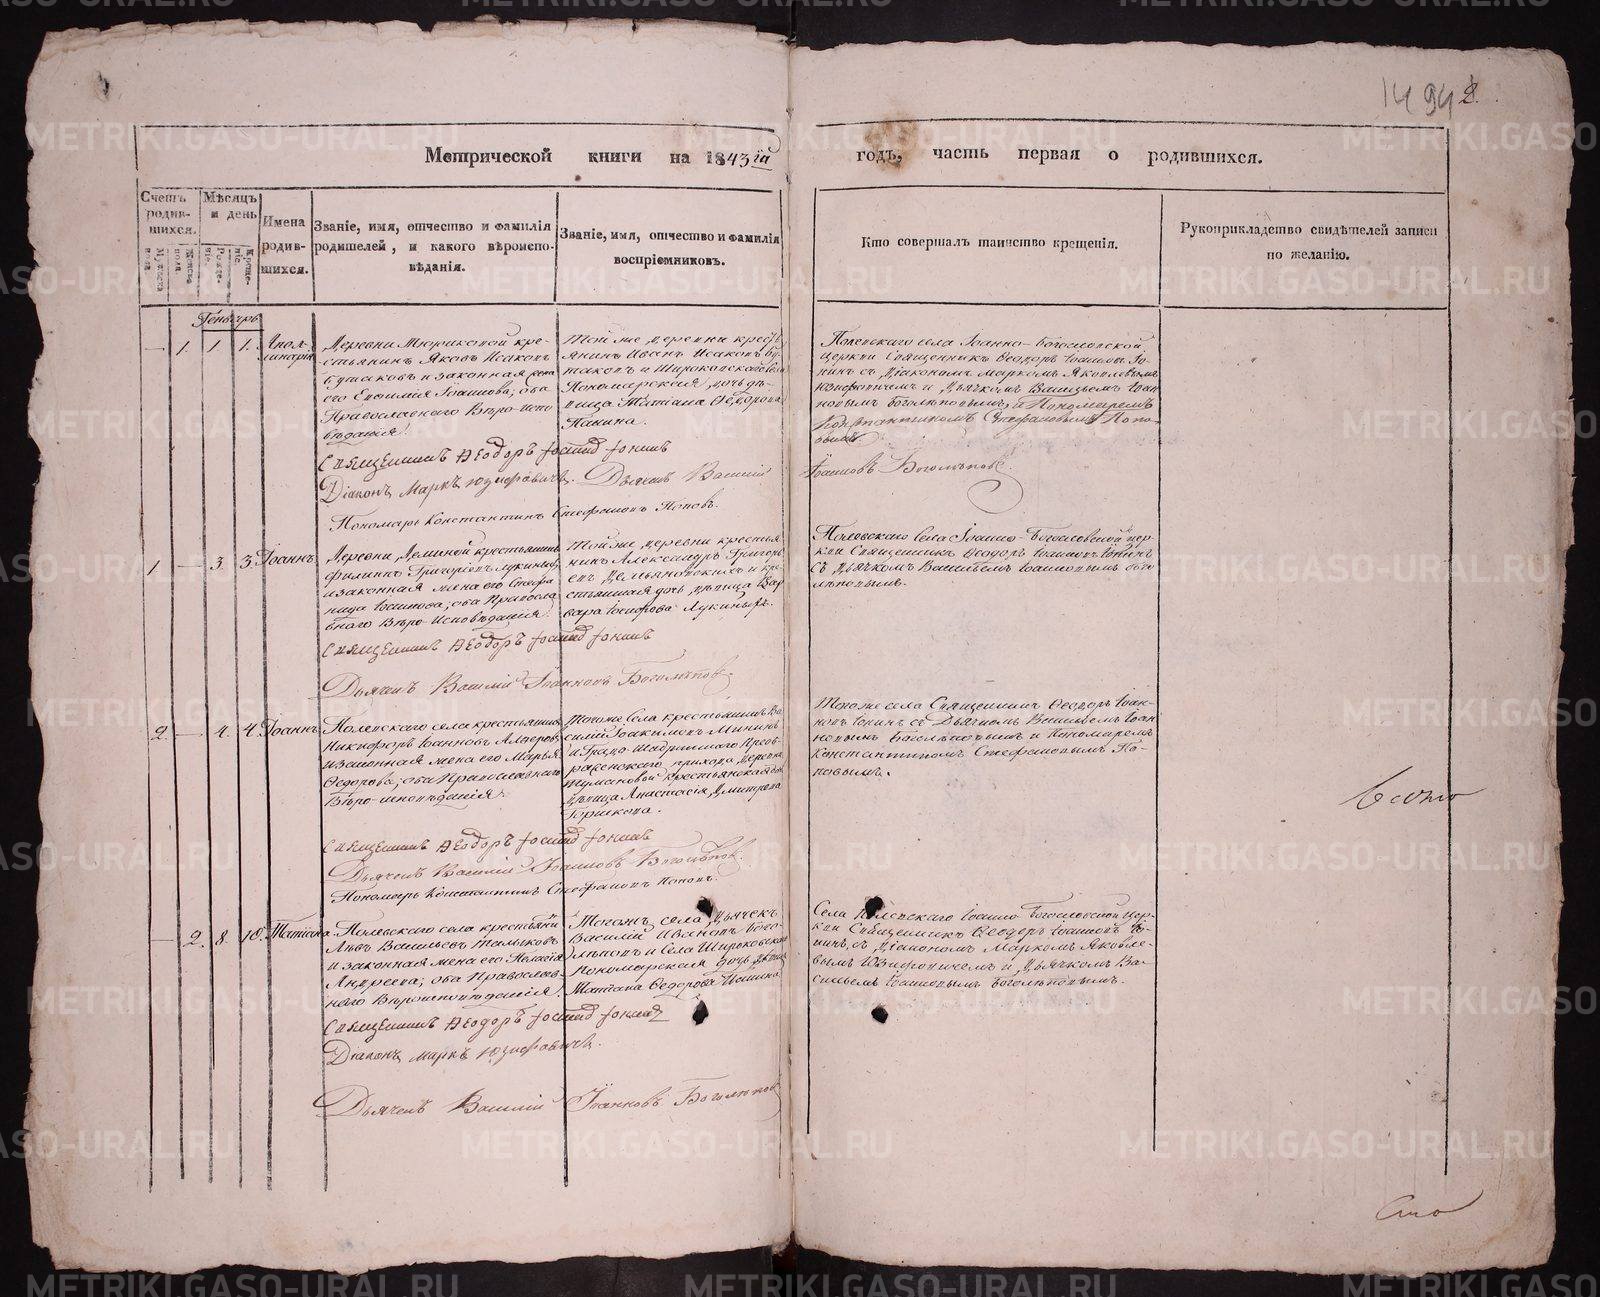 1494
2.
Метрической книги на 1843й
годъ, часть первая о родившихся.
Счетъ родив-шихся.
Мужеска пола.
Женска пола.
Мѣсяцъ и день
Рожде-нія.
Креще-нія.
Имена родив-шихся.
Званіе, имя, отчество и фамилія
родителей, и какого вѣроиспо-
вѣданія.
Званіе, имя, отчество и фамилія
воспріемниковъ.
Кто совершалъ таинство крещенія.
Рукоприкладство свидѣтелей записи
по желанію.
Генварь
1. 1 1.
Апол-
линарія
кре-
стьянинъ Яковъ Исаковъ
и законная жена
его Евфимія Іоаннова, оба
Православнаго Вѣро-испо-
вѣданія.
Той же деревни кресть-
янинъ Иванъ Исаковъ Бу-
таковъ и Широковскаго села
Пономарская дочь дѣ-
вица Татіана Ѳедорова
Полевскаго села Іоанно-Богословской
церкви Священникъ Ѳеодоръ Іоанновъ Іо-
нинъ съ Діакономъ Маркомъ Яковлевымъ
и Дьячкомъ Васильемъ Іоан-
новымъ Боголѣповымъ, и Пономаремъ
Константиномъ Стефановымъ Попо-
вымъ.
Священникъ Ѳеодоръ Іоанновъ Іонинъ
Діаконъ Маркъ Юзифовичь. Дьячекъ Василій
Іванновъ Боголѣповъ.
Пономарь Константинъ Стефановъ Поповъ.
1 — 3 3 Іоаннъ
Деревни Деминой крестьянинъ
Филиппъ Григорьевъ Лукиныхъ
и законная жена его Стефа-
нида Іоаннова, оба Правосла-
внаго Вѣро-Исповѣданія.
Той же деревни крестья-
нинъ Александръ Григорь-
евъ Демьяновскихъ и кре-
стьянская дочь дѣвица Вар-
вара Іосифова Лукиныхъ.
Полевскаго Села Іоанно-Богословской цер-
кви Священникъ Ѳеодоръ Іоанновъ Іонинъ
съ Дьячкомъ Васильемъ Іоанновымъ Бого-
лѣповымъ.
Священникъ Ѳеодоръ Іоанновъ Іонинъ
Дьячекъ Василій Іванновъ Боголѣповъ
2 — 4. 4. Іоаннъ
Полевскаго села крестьянинъ
Никифоръ Іоанновъ
и законная жена его Марья
Ѳедорова, оба Православнаго
Вѣро-исповѣданія.
Того же Села крестьянинъ Ва-
силій Іоакимовъ Мининъ
и Градо-Шадринскаго Преоб-
раженскаго прихода деревни
крестьянская дочь
дѣвица Анастасія Димитріева
Горшкова.
Того же села Священникъ Ѳеодоръ Іоан-
новъ Іонинъ съ Дьячкомъ Васильемъ Іоан-
новымъ Боголѣповымъ и Пономаремъ
Константиномъ Стефановымъ По-
повымъ.
Священникъ Ѳеодоръ Іоанновъ Іонинъ
Дьячекъ Василій Іоанновъ Боголѣповъ.
Пономарь Константинъ Стефановъ Поповъ.
— 2. 8. 10. Татіана
Полевскаго села крестьянинъ
Львъ Васильевъ
и законная жена его Пелагія
Андреева, оба Православ-
наго Вѣроисповѣданія.
Того же села Дьячекъ
Василій Ивановъ Бого-
лѣповъ и Села Широковскаго
Пономарская дочь дѣвица
Татіана Ѳедорова
Села Полевскаго Іоанно-Богословской цер-
кви Священникъ Ѳеодоръ Іоанновъ Іо-
нинъ, съ Діакономъ Маркомъ Яковле-
вымъ Юзифовичемъ и Дьячкомъ Ва-
сильемъ Іоанновымъ Боголѣповымъ.
Священникъ Ѳеодоръ Іоанновъ Іонинъ
Діаконъ Маркъ Юзифовичь.
Дьячекъ Василій Іванновъ Боголѣповъ
METRIKI.GASO-URAL.RU